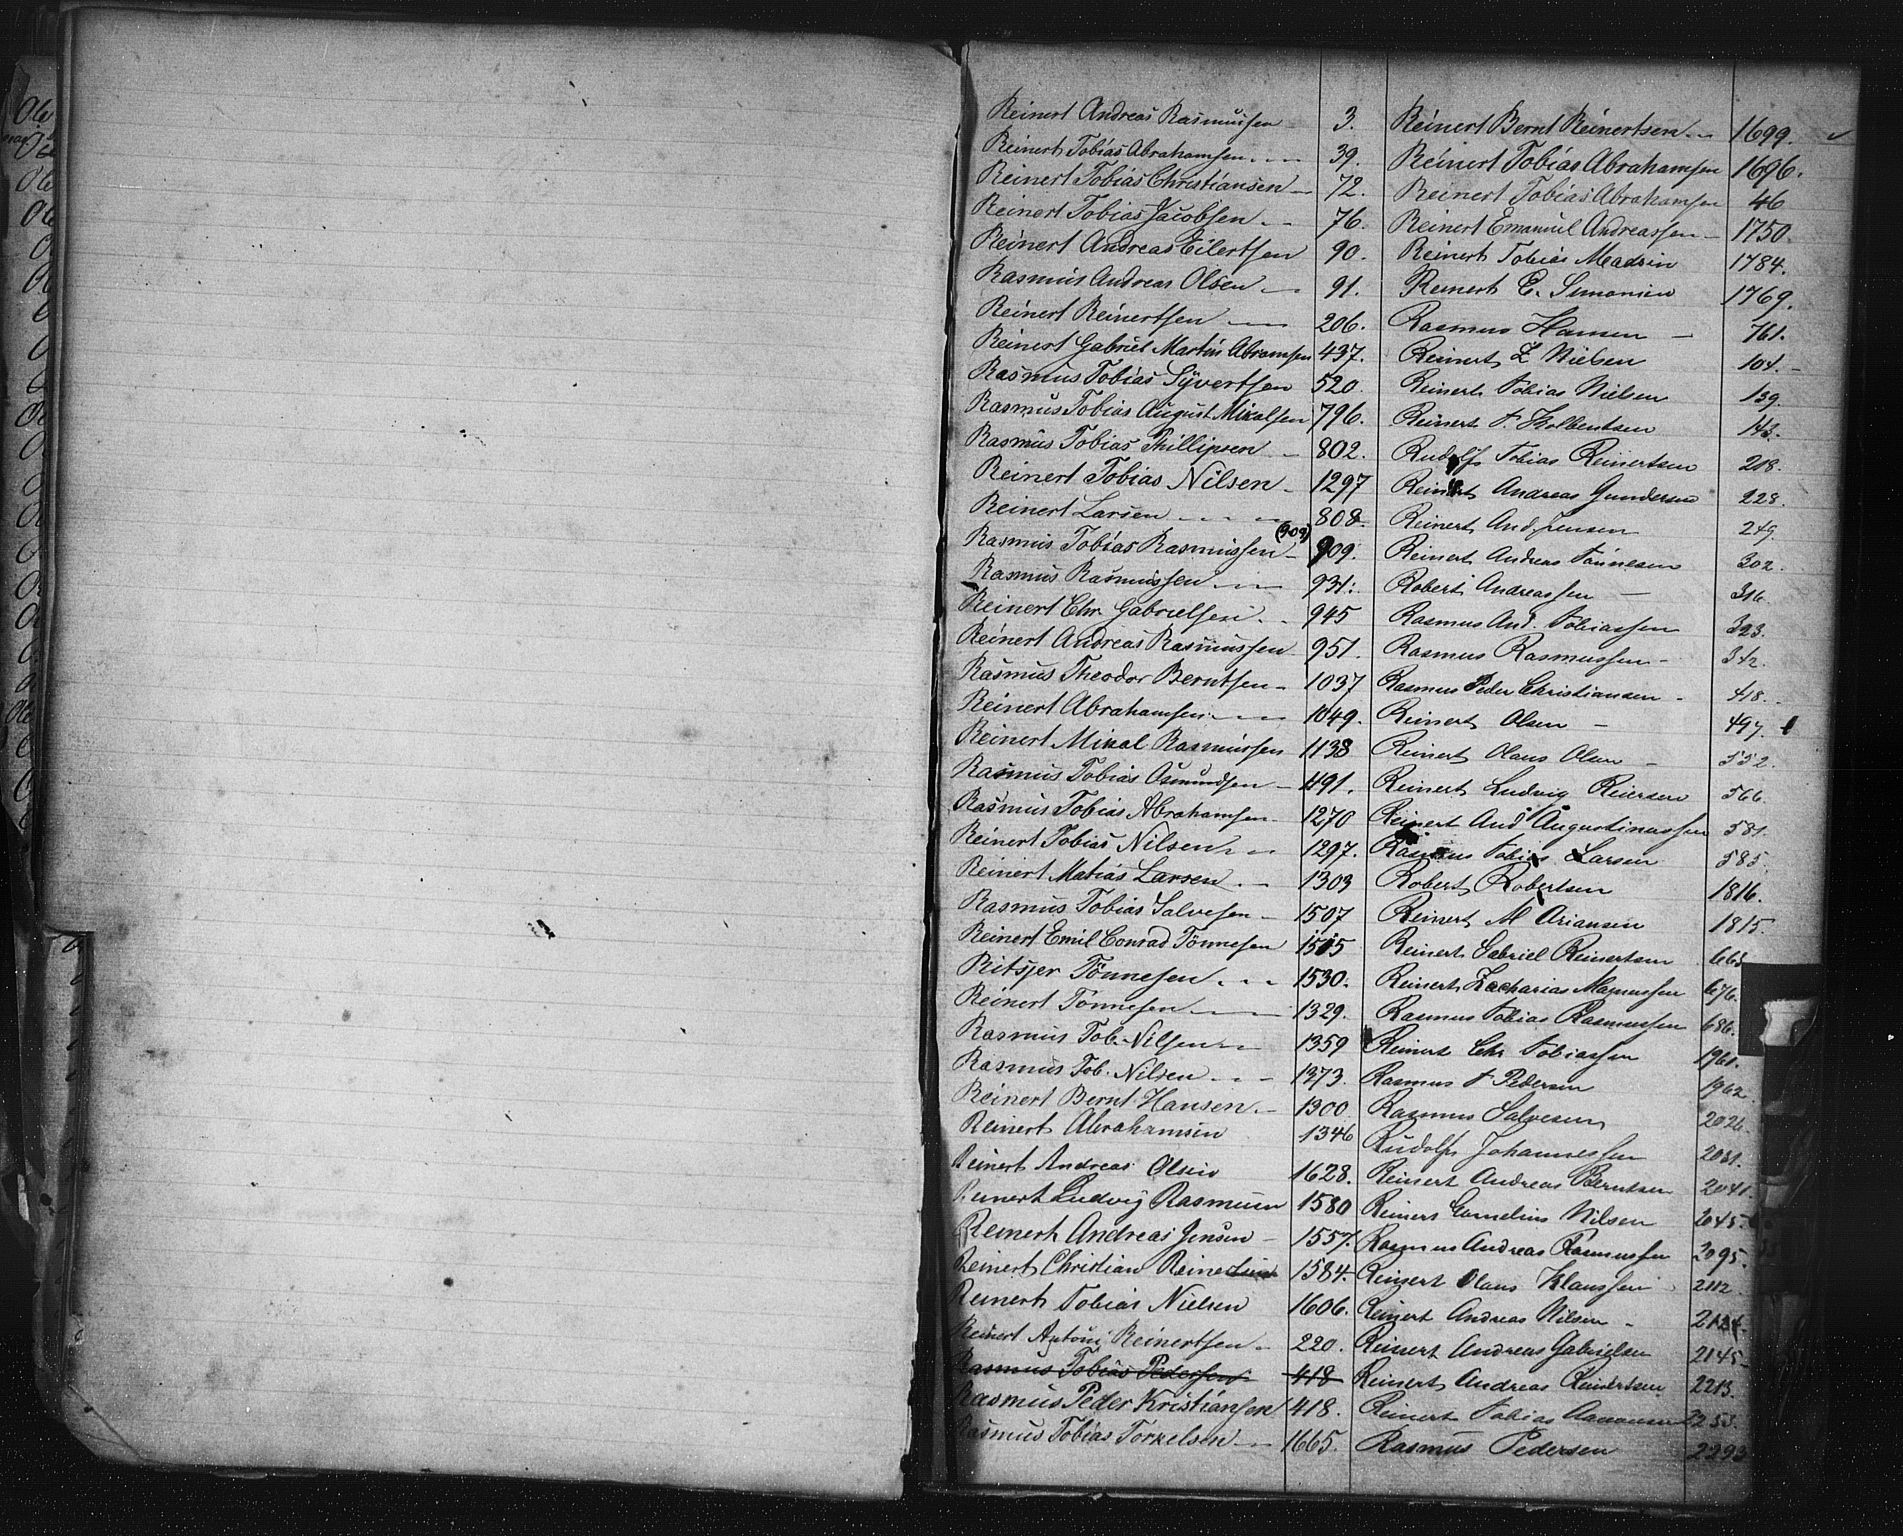 Reinert Andreas Rasmussen 3.
Reinert Tobias Abrahamsen 39.
Reinert Tobias Christiansen 72.
Reinert Tobias Jacobsen 76.
Reinert Andreas Eilertsen 90.
Rasmus Andreas Olsen 91.
Reinert Reinertsen 206.
Reinert Gabriel Martin Abramsen 437.
Rasmus Tobias Syvertsen 520.
Rasmus Tobias August Mikalsen 796.
Rasmus Tobias Phillipsen 802.
Reinert Tobias Nilsen 1297
Reinert Larsen 808.
Rasmus Tobias Rasmussen (909) 909.
Rasmus Rasmussen 931.
Reinert Chr. Gabrielsen 945
Reinert Andreas Rasmussen 951.
Rasmus Theodor Berntsen 1037
Reinert Abrahamsen 1049.
Reinert Mikal Rasmussen 1138
Rasmus Tobias Osmundsen 491.
Rasmus Tobias Abrahamsen 1270
Reinert Tobias Nilsen 1297.
Reinert Matias Larsen 1303
Rasmus Tobias Salvesen 1507
Reinert Emil Conrad Tönnesen 1515
Ritsjer Tönnesen 1530.
Reinert Tönnesen 1329.
Rasmus Tob. Nilsen 1359
Rasmus Tob. Nilsen 1373.
Reinert Bernt Hansen 1300
Reinert Abrahamsen 1346
Reinert Andreas Olsen 1628.
Reinert Ludvig Rasmusen 1580
Reinert Andreas Jensen 1557.
Reinert Christian Reinertsen 1584.
Reinert Tobias Nielsen 1606.
Reinert Antoni Reinertsen 220.
Rasmus Tobias Pedersen 418
Rasmus Peder Kristiansen 418.
Rasmus Tobias Torkelsen 1665.
Reinert Bernt Reinertsen 1699.
Reinert Tobias Abrahamsen 1696.
Reinert Tobias Abrahamsen 46
Reinert Emanuel Andreassen 1750.
Reinert Tobias Madsen 1784.
Reinert E. Simonsen 1769.
Rasmus Hansen 761.
Reinert Z Nielsen 104.
Reinert Tobias Nielsen 139.
Reinert T. Kolbentsen 143.
Rudolf Tobias Reinertsen 218.
Reinert Andreas Gundersen 228.
Reinert And. Jensen 249.
Reinert Andreas Tönnesen 302.
Robert Andreassen 316.
Rasmus And. Tobiassen 323.
Rasmus Rasmussen 342.
Rasmus Peder Christiansen 418.
Reinert Olsen 497.
Reinert Olaus Olsen 552.
Reinert Ludvig Reiersen 566.
Reinert And Augustinussen 581.
Rasmus Tobias Larsen 585.
Robert Robertsen 1816.
Reinert M Ariansen 1815.
Reinert Gabriel Reinertsen 663
Reinert Zacharias Magnussen 676.
Rasmus Tobias Rasmussen 686.
Reinert Chr Tobiassen 1961.
Rasmus T Pedersen 1962.
Rasmus Salvesen 2026.
Rudolf Johannessen 2031.
Reinert Andreas Berntsen 2041.
Reinert Cornelius Nilsen 2045.
Rasmus Andreas Rasmussen 2095.
Reinert Olaus Klaussen 2112.
Reinert Andreas Nilsen 2134.
Reinert Andreas Gabrielsen 2145
Reinert Andreas Reinertsen 2213.
Reinert Tobias Aanonsen 2253.
Rasmus Pedersen 2293